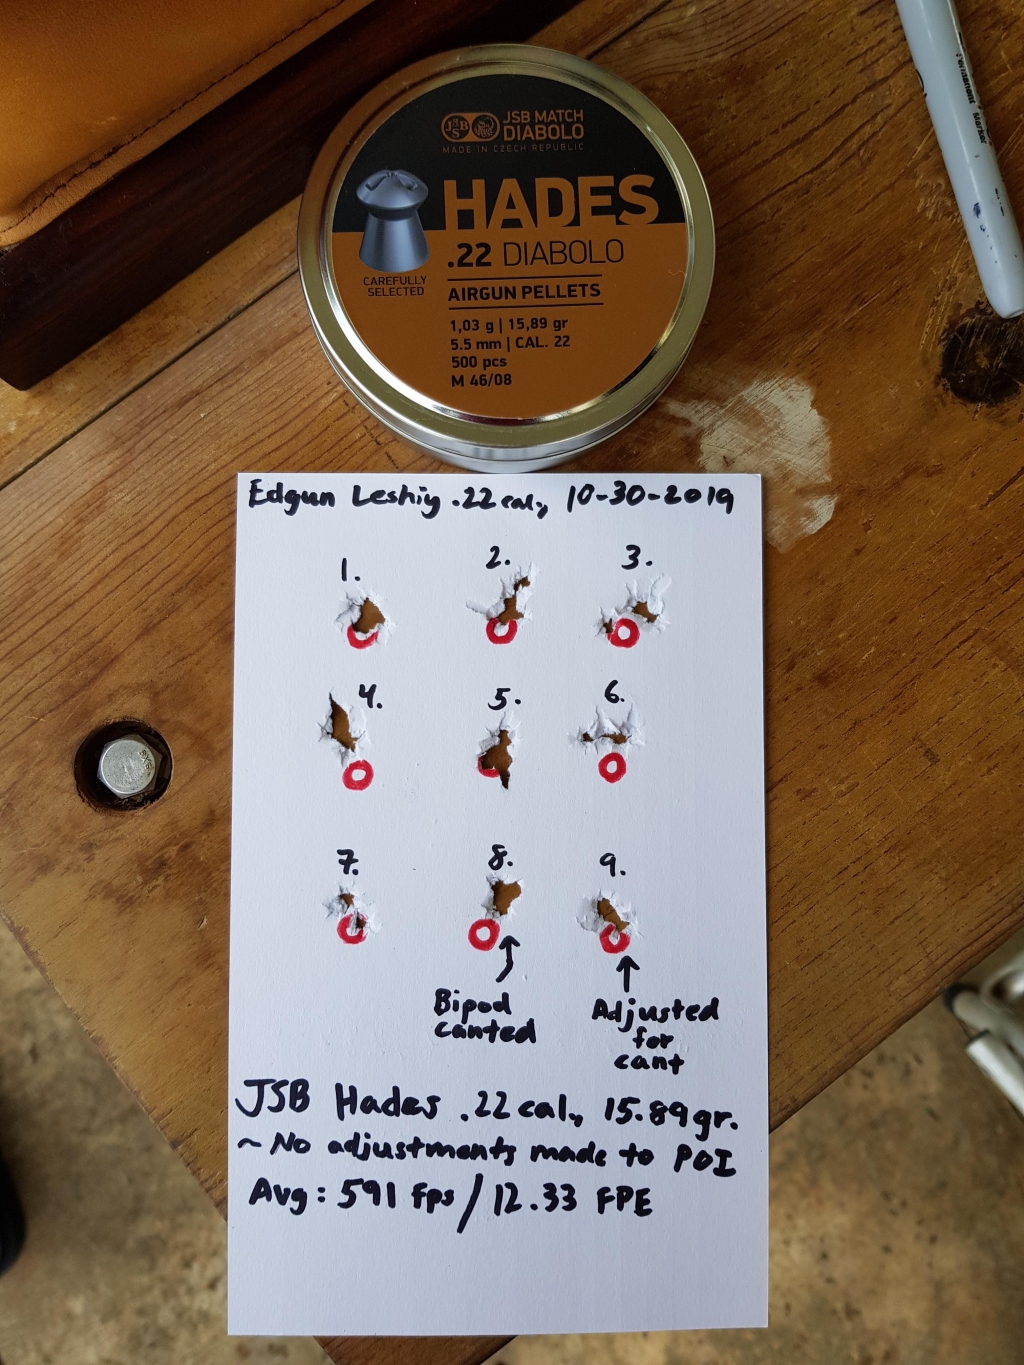 Permanent Marker
JSB
JSB MATCH
DIABOLO
MADE IN CZECH REPUBLIC
HADES
.22 DIABOLO
CAREFULLY
SELECTED
AIRGUN PELLETS
1,03 g | 15,89 gr
5.5 mm | CAL. 22
500 pcs
M 46/08
Edgun Leshiy .22 cal, 10-30-2019
1. 2. 3.
4. 5. 6.
7. 8. 9.
Bipod
canted
Adjusted
for
cant
JSB Hades .22 cal, 15.89gr.
~ No adjustments made to POI
Avg: 591 fps / 12.33 FPE